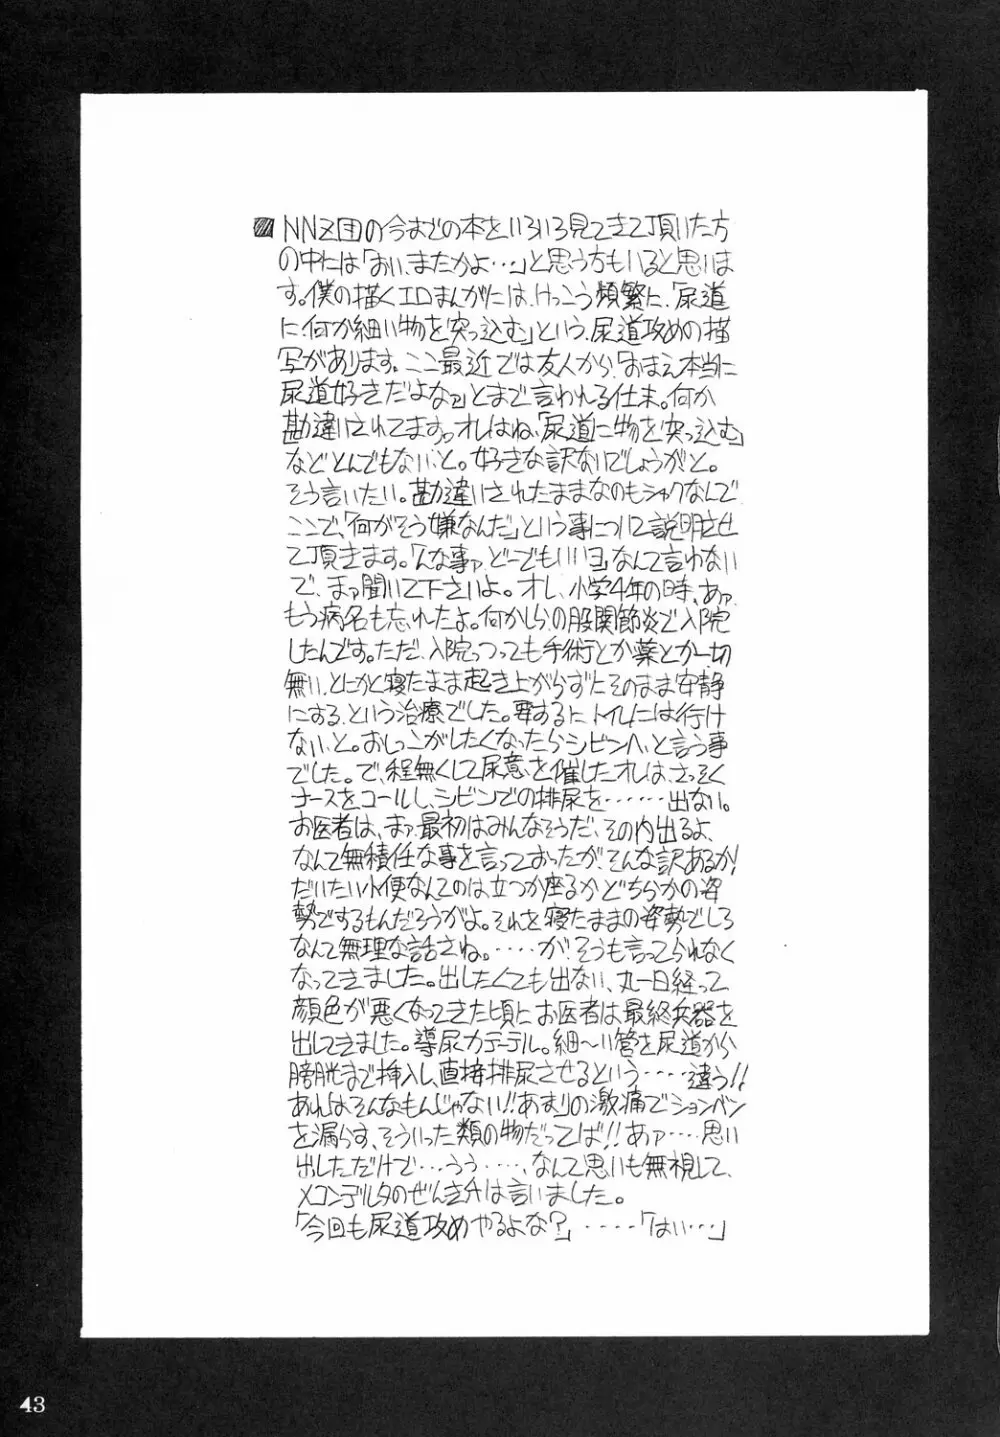 NNZ団の今までの本をいろいろ見てきて頂いた方
の中には「おい、またかよ…」と思う方もいると思いま
す。僕の描くエロまんがには、けっこう頻繁に、「尿道
に何か細い物を突っ込む」という、尿道攻めの描
写があります。ここ最近では友人から「おまえ本当に
尿道好きだよなァ」とまで言われる仕末。何か
勘違いされてますっオレはね、「尿道に物を突っ込む」
などとんでもない、と。好きな訳ないでしょうがと。
そう言いたい。勘違いされたままなのもシャクなんで
ここで、「何がそう嫌なんだ」という事について説明させ
て頂きます。「んな事ァ、どーでもいいヨ」なんて言わない
で、まァ聞いて下さいよ。オレ、小学4年の時、あァ、
もう病名も忘れたよ。何かしらの股関節炎で入院
したんです。ただ、入院っつっても手術とか薬とか一切
無い、とにかく寝たまま起き上がらずにそのまま安静
にする、という治療でした。要するに、トイレには行け
ない、と。おしっこがしたくなったらシビンへ、と言う事
でした。で、程無くして尿意を催したオレは、さっそく
ナースをコールし、シビンでの排尿を……出ない。
お医者は、まァ、最初はみんなそうだ、その内出るよ、
なんて無積任な事を言っておったがそんな訳あるか!
だいたい小便なんてのは立つか座るかどちらかの姿
勢でするもんだろうがよ。それを寝たままの姿勢でしろ
なんて無理な話さね。……が、そうも言ってられなく
なってきました。出したくても出ない、丸一日経って
顔色が悪くなってきた頃に、お医者は最終兵器を
出してきました。導尿カテーテル。細〜い管を尿道から
膀胱まで挿入し、直接排尿させるという……違う!!
あれはそんなもんじゃない!!あまりの激痛でションベン
を漏らす、そういった類の物だってば!!あァ……思い
出しただけで…うう……、なんて思いも無視して、
メコンデルタのぜんきチは言いました。
「今回も尿道攻めやるよな?」……「はい…」
43